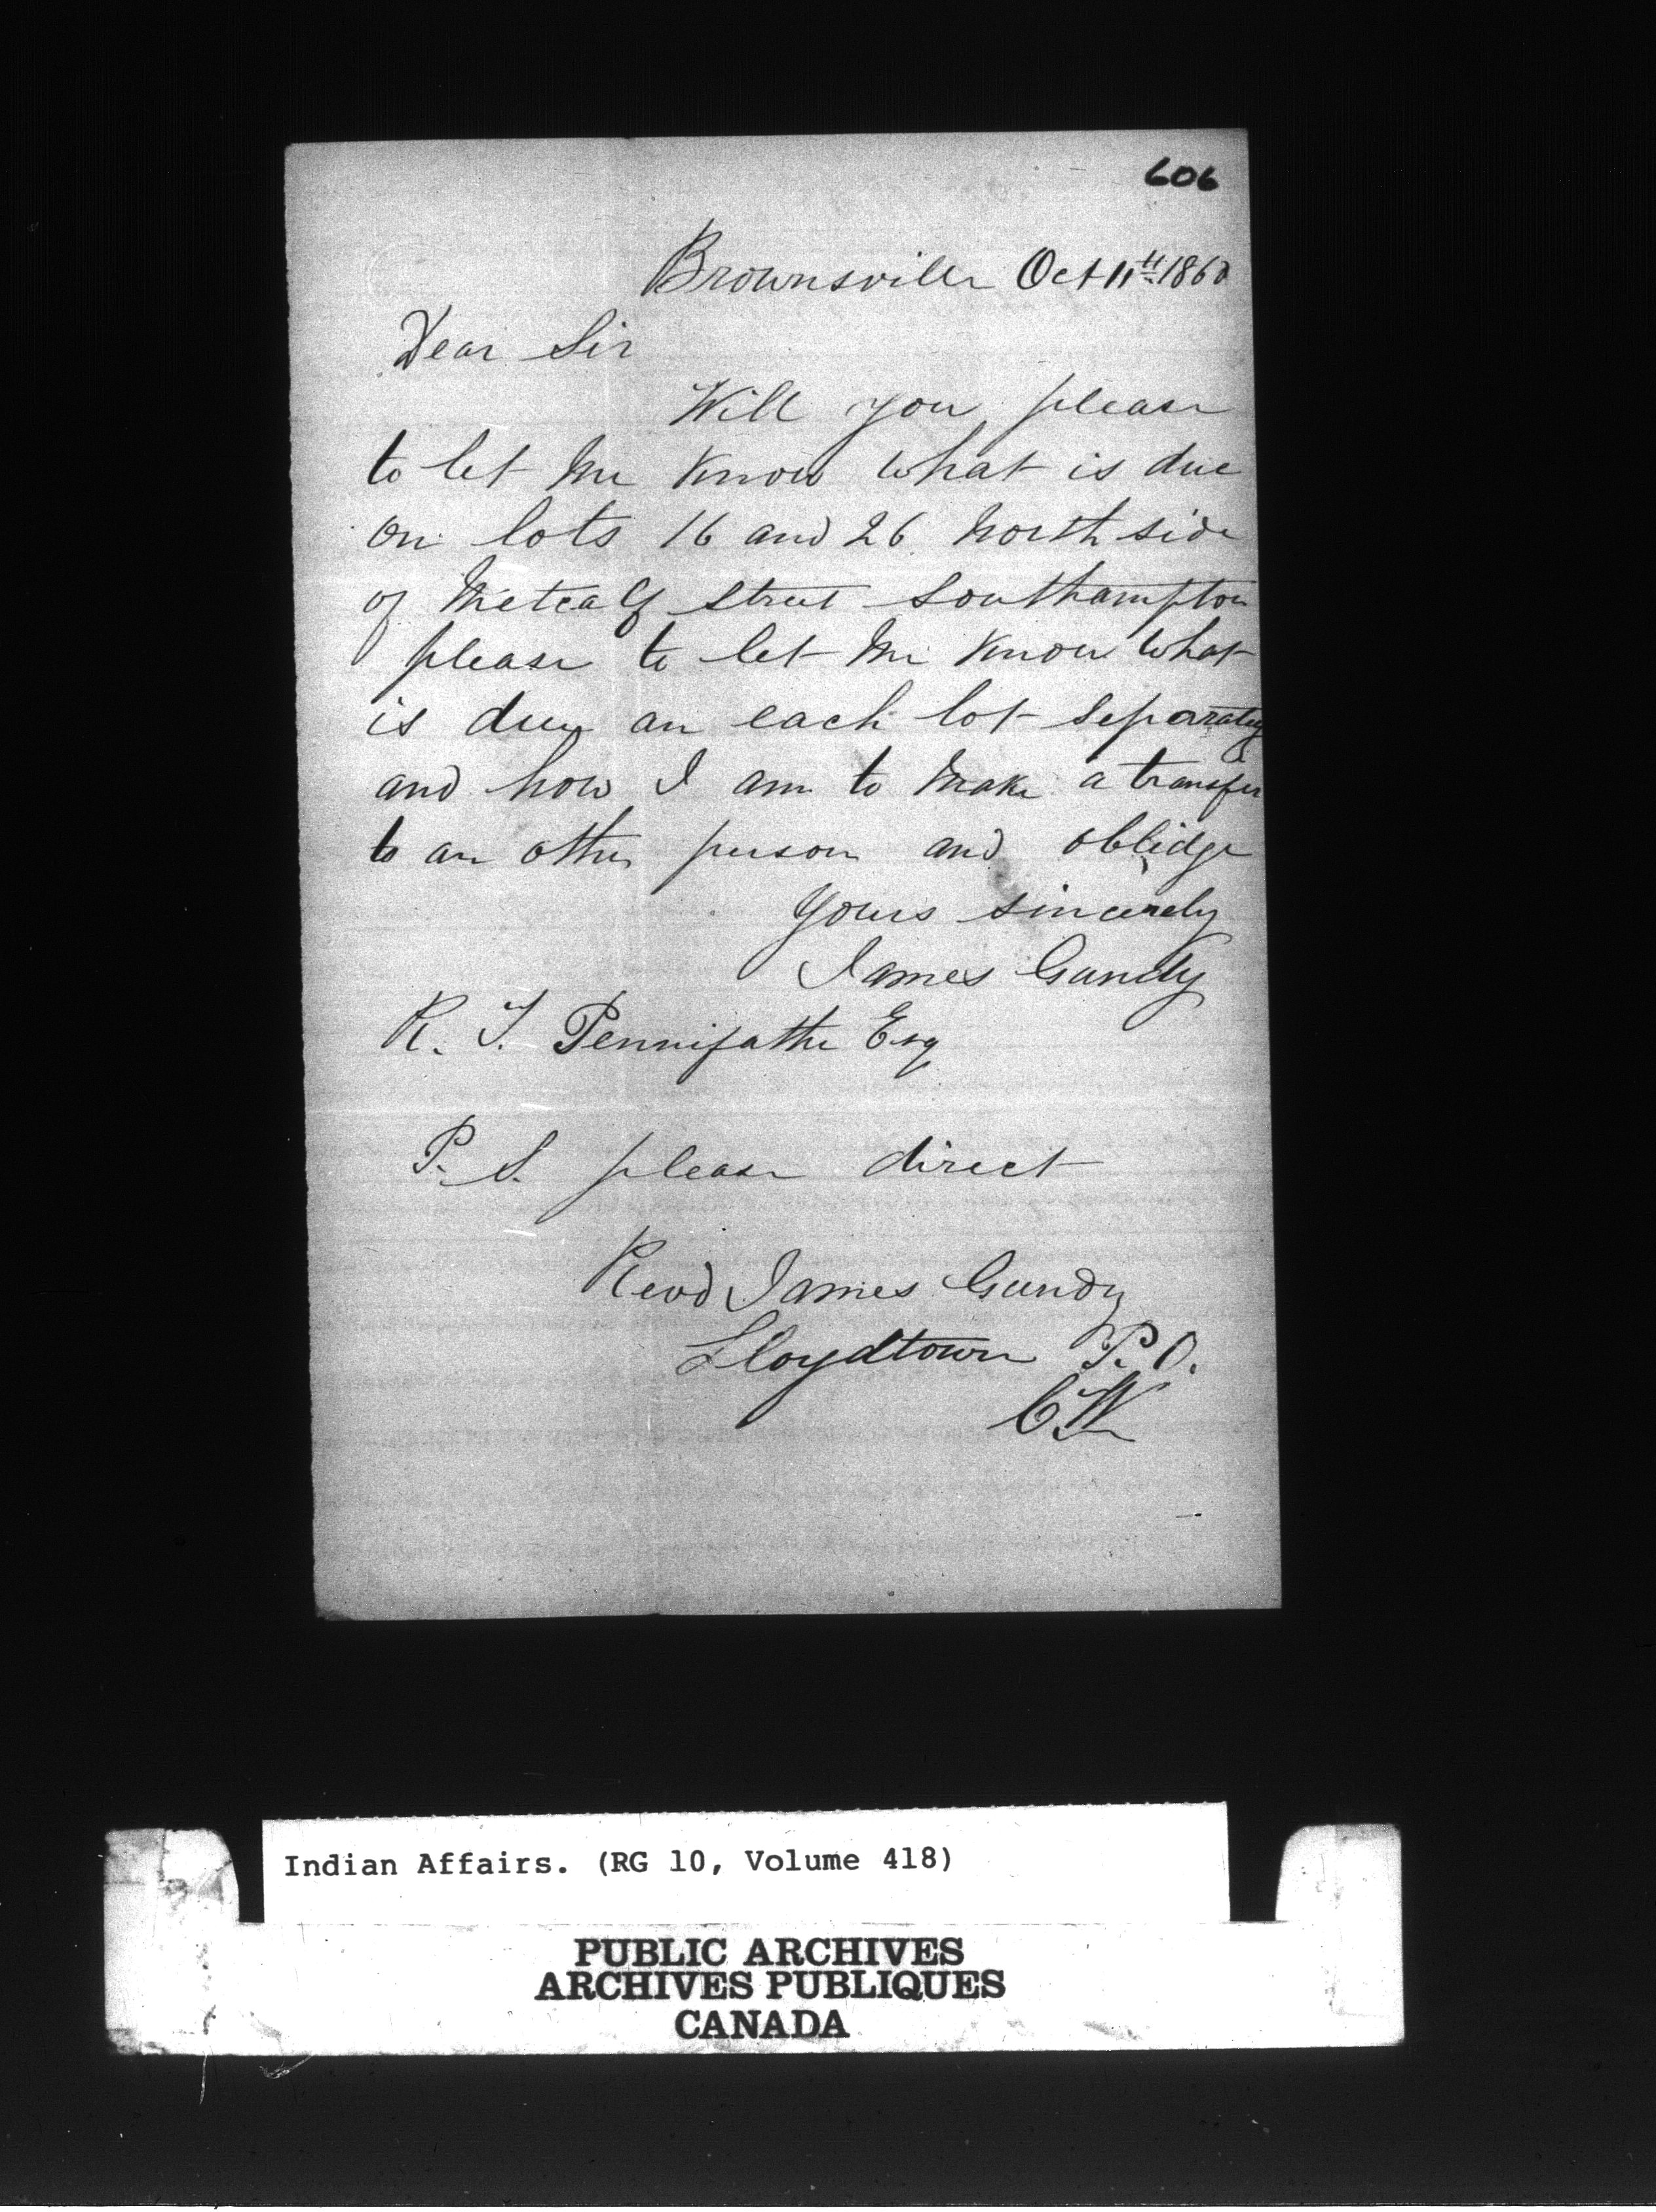 606
Brownsville Oct 11th 1860
Dear Sir
Will you please
to let me know what is due
on lots 16 and 26 North side
of Metcalf street Southampton
please to let me know what
is due an each lot seperately
and how I am to make a transfer
to an other person and oblidge
Yours sincerely
James Gundy
R. T. Pennifather Esq
P. S. please direct
Revd James Gundy
Lloydtown P. O.
C.W
Indian Affairs. (RG 10, Volume 418)
PUBLIC ARCHIVES
ARCHIVES PUBLIQUES
CANADA